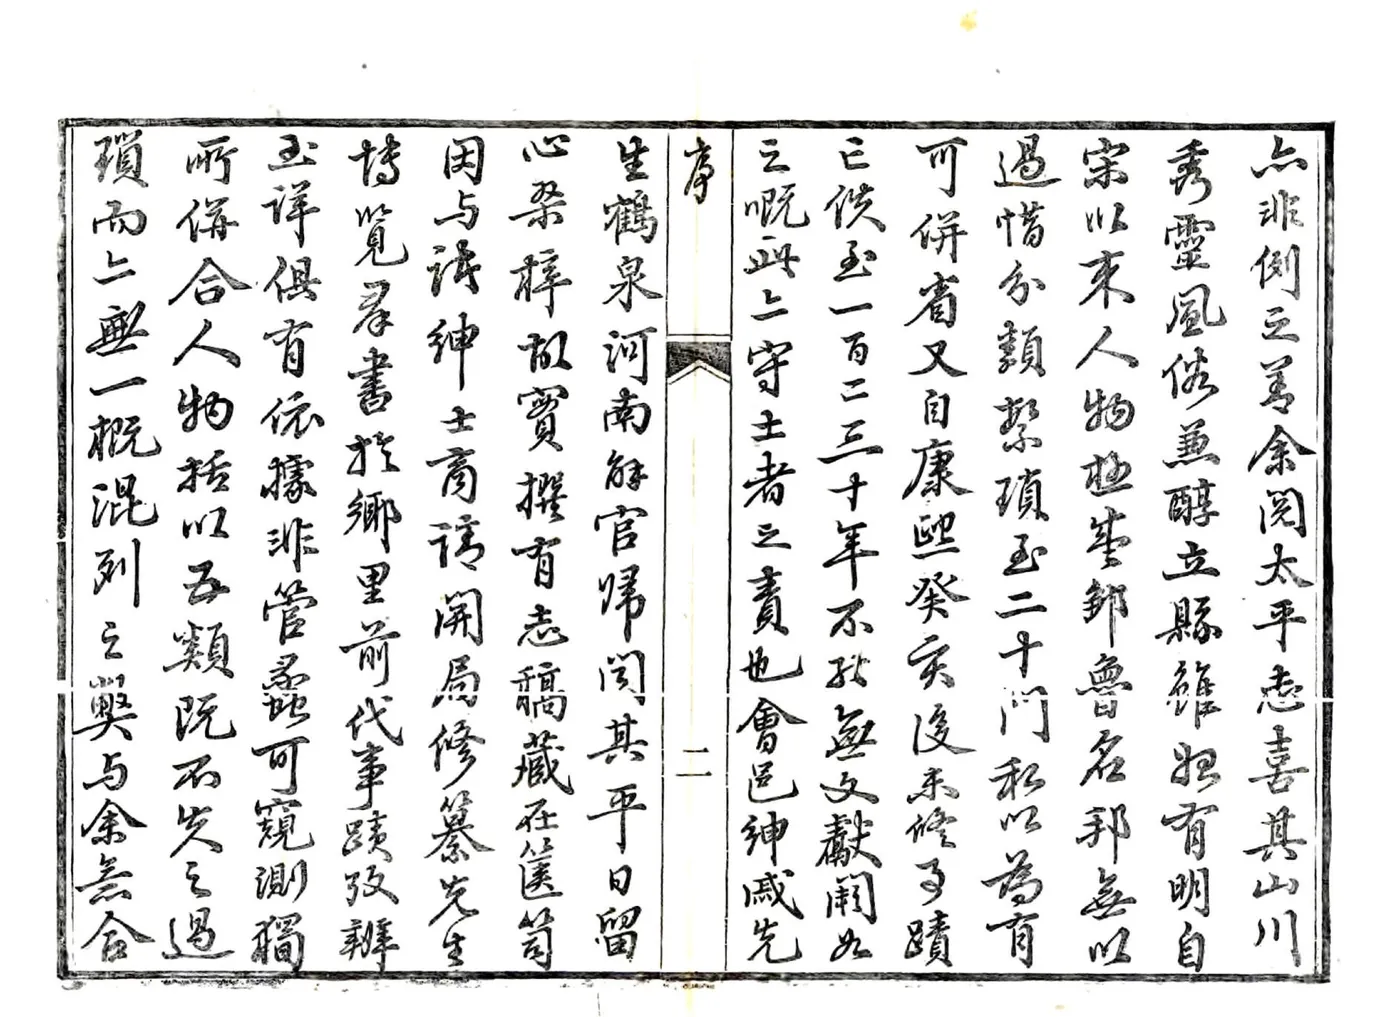 亦非例之善余閱太平志喜其山川
秀靈風俗兼醇立縣雖始有明自
宋以來人物極盛鄒魯名邦無以
過惜分類繁瑣至二十門私以為有
可併省又自康熙癸亥後未修事蹟
亡佚至一百二三十年不能無文獻闕如
之嘅此亦守土者之責也會邑紳戚先
序
二
生鶴泉河南解官歸閱其平日留
心桑梓故實撰有志稿藏在篋笥
因与諸紳士商請開局修纂先生
博覽羣書於鄉里前代事蹟攷辨
至詳俱有依據非管蠡可窺測獨
所併合人物括以五類既不失之過
瑣而亦無一概混列之獘与余意合